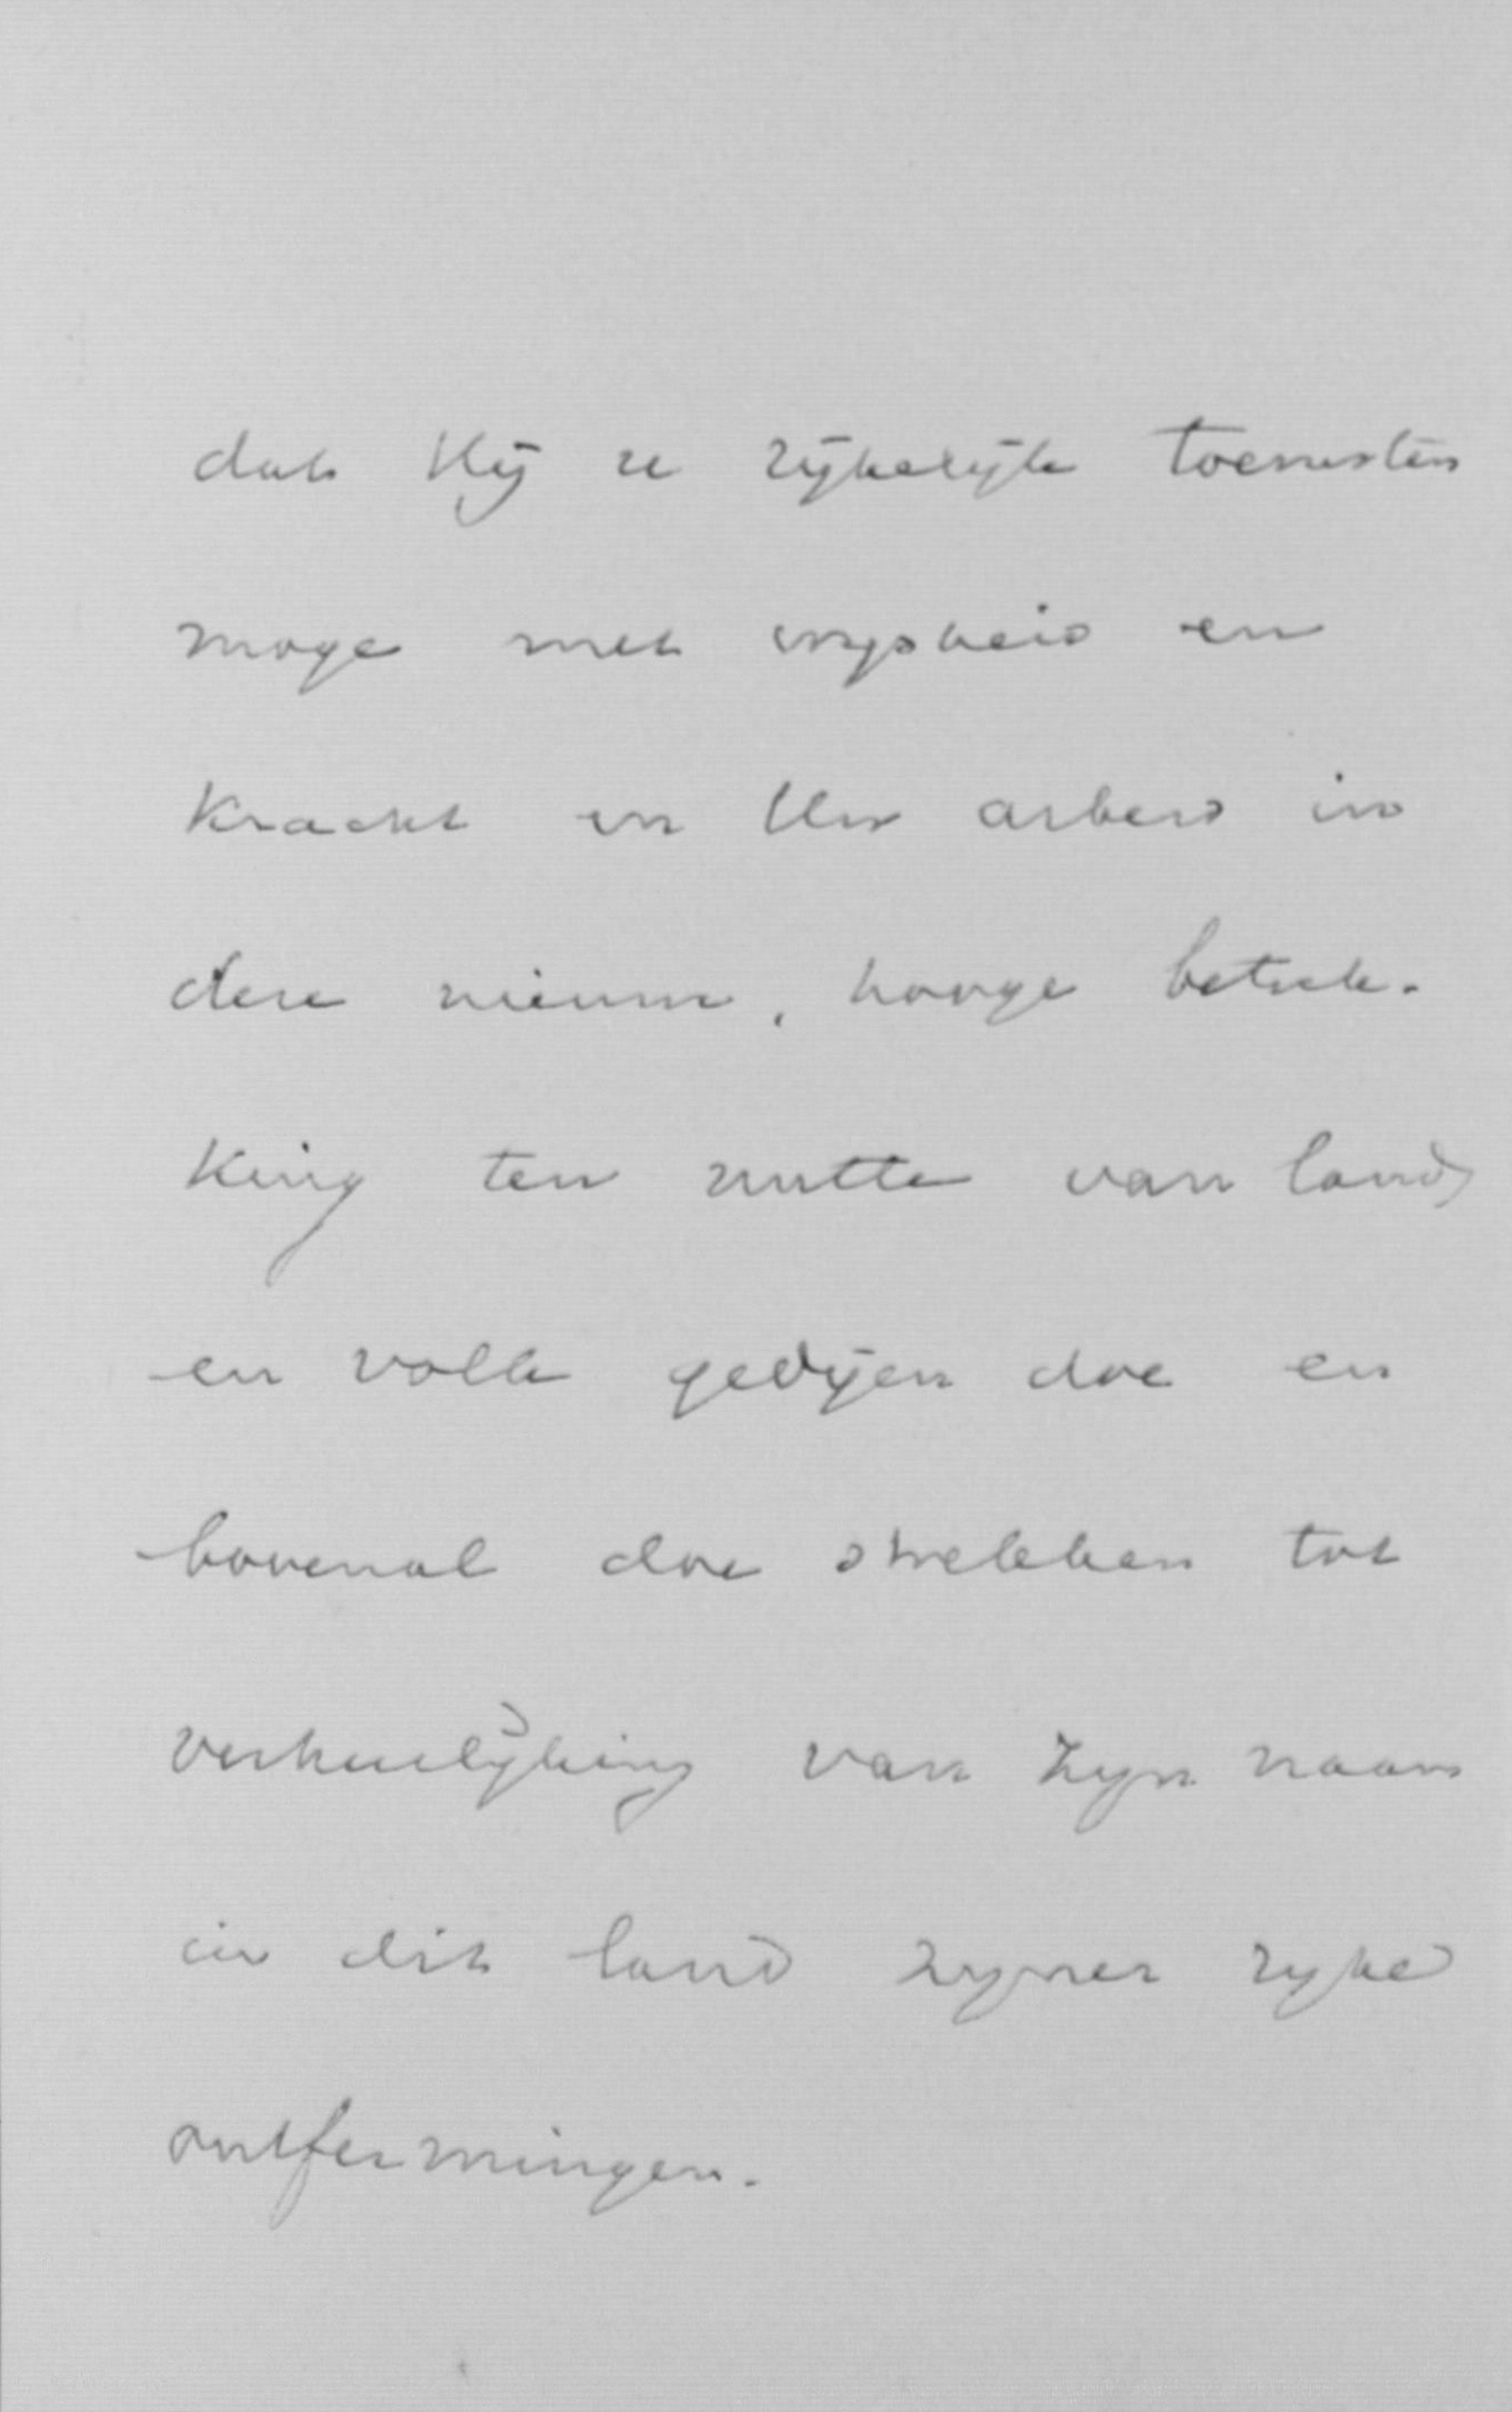 dat Hij u rijkelijk toerusten
moge met wijsheid en
kracht en Uw arbeid in
deze nieuwe, hooge betrek-
king ten nutte van land
en volk gedijen doe en
bovenal doe strekken tot
verheerlijking van Zijn naam
in dit land zijner rijke
ontfermingen.